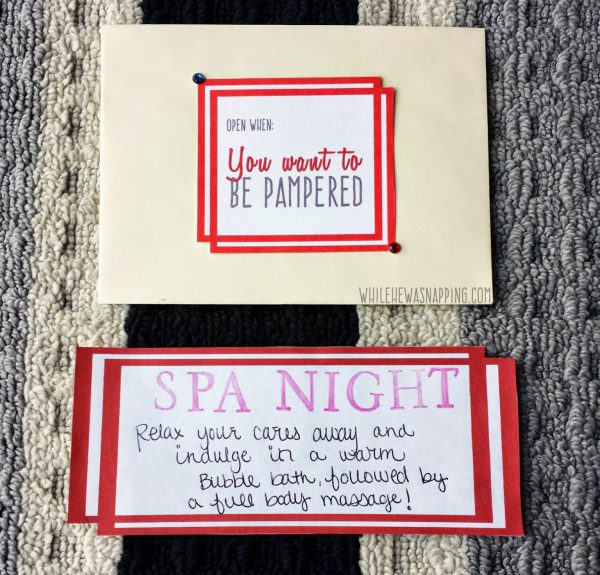 OPEN WHEN:
You want to
BE PAMPERED
WHILEHEWASNAPPING.COM
SPA NIGHT
Relax your cares away and
indulge in a warm
Bubble bath, followed by
a full body massage!